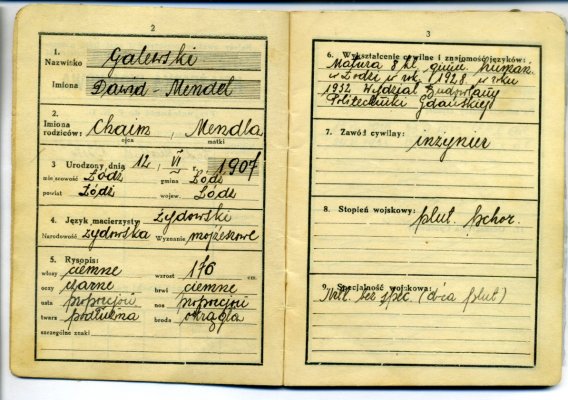 2
1.
Nazwisko Galewski
Imiona Dawid - Mendel
2.
Imiona
rodziców: Chaim, Mendla
ojca matki
3 Urodzony dnia 12 / VI r. 1907
miejscowość Łódź gmina Łódź
powiat Łódź wojew. Łódź
4. Język macierzysty żydowski
Narodowość żydowska Wyznanie mojżeszowe
5. Rysopis:
włosy ciemne wzrost 176 cm.
oczy czarne brwi ciemne
usta proporcj. nos proporcj.
twarz podłużna broda okrągła
szczególne znaki
3
6. Wykształcenie cywilne i znajomość języków:
Matura 8 kl. gimn. human.
w Łodzi w rok. 1928. w roku
1932 Wydział Budowlany
Politechniki Gdańskiej
7. Zawód cywilny:
inżynier
8. Stopień wojskowy:
plut. pchor.
9. Specjalność wojskowa:
bez spec. (d-ca plut)